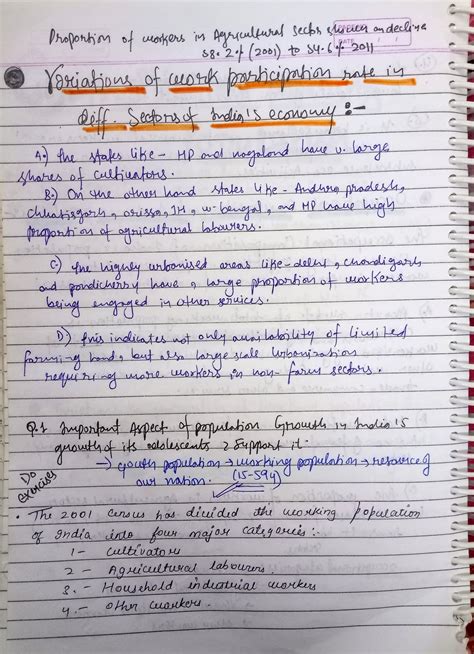 Proportion of workers in Agricultural Sector shows an decline
58.2% (2001) to 54.6% 2011
Variations of work participation rate in
diff. Sectors of India's economy :-
A.) The states like - HP and nagaland have v. large
shares of cultivators.
B.) On the other hand states like - Andhra pradesh,
chhatisgarh, orissa, JH, w-bengal, and MP have high
proportion of agricultural labourers.
C) The highly urbanised areas like - delhi, chandigarh
and pondicherry have a large proportion of workers
being engaged in other services.
D) This indicates not only availability of limited
farming land, but also large scale urbanization
requiring more workers in non-farm sectors.
Q.1 Important Aspect of population Growth in India is
growth of its adolescents. Support it.
Do exercises
→ youth population → working population → resource of
our nation. (15-59y)
• The 2001 census has divided the working population
of India into four major categories:-
1 - cultivators
2 - Agricultural labourers
3 - Household industrial workers
4 - other workers.